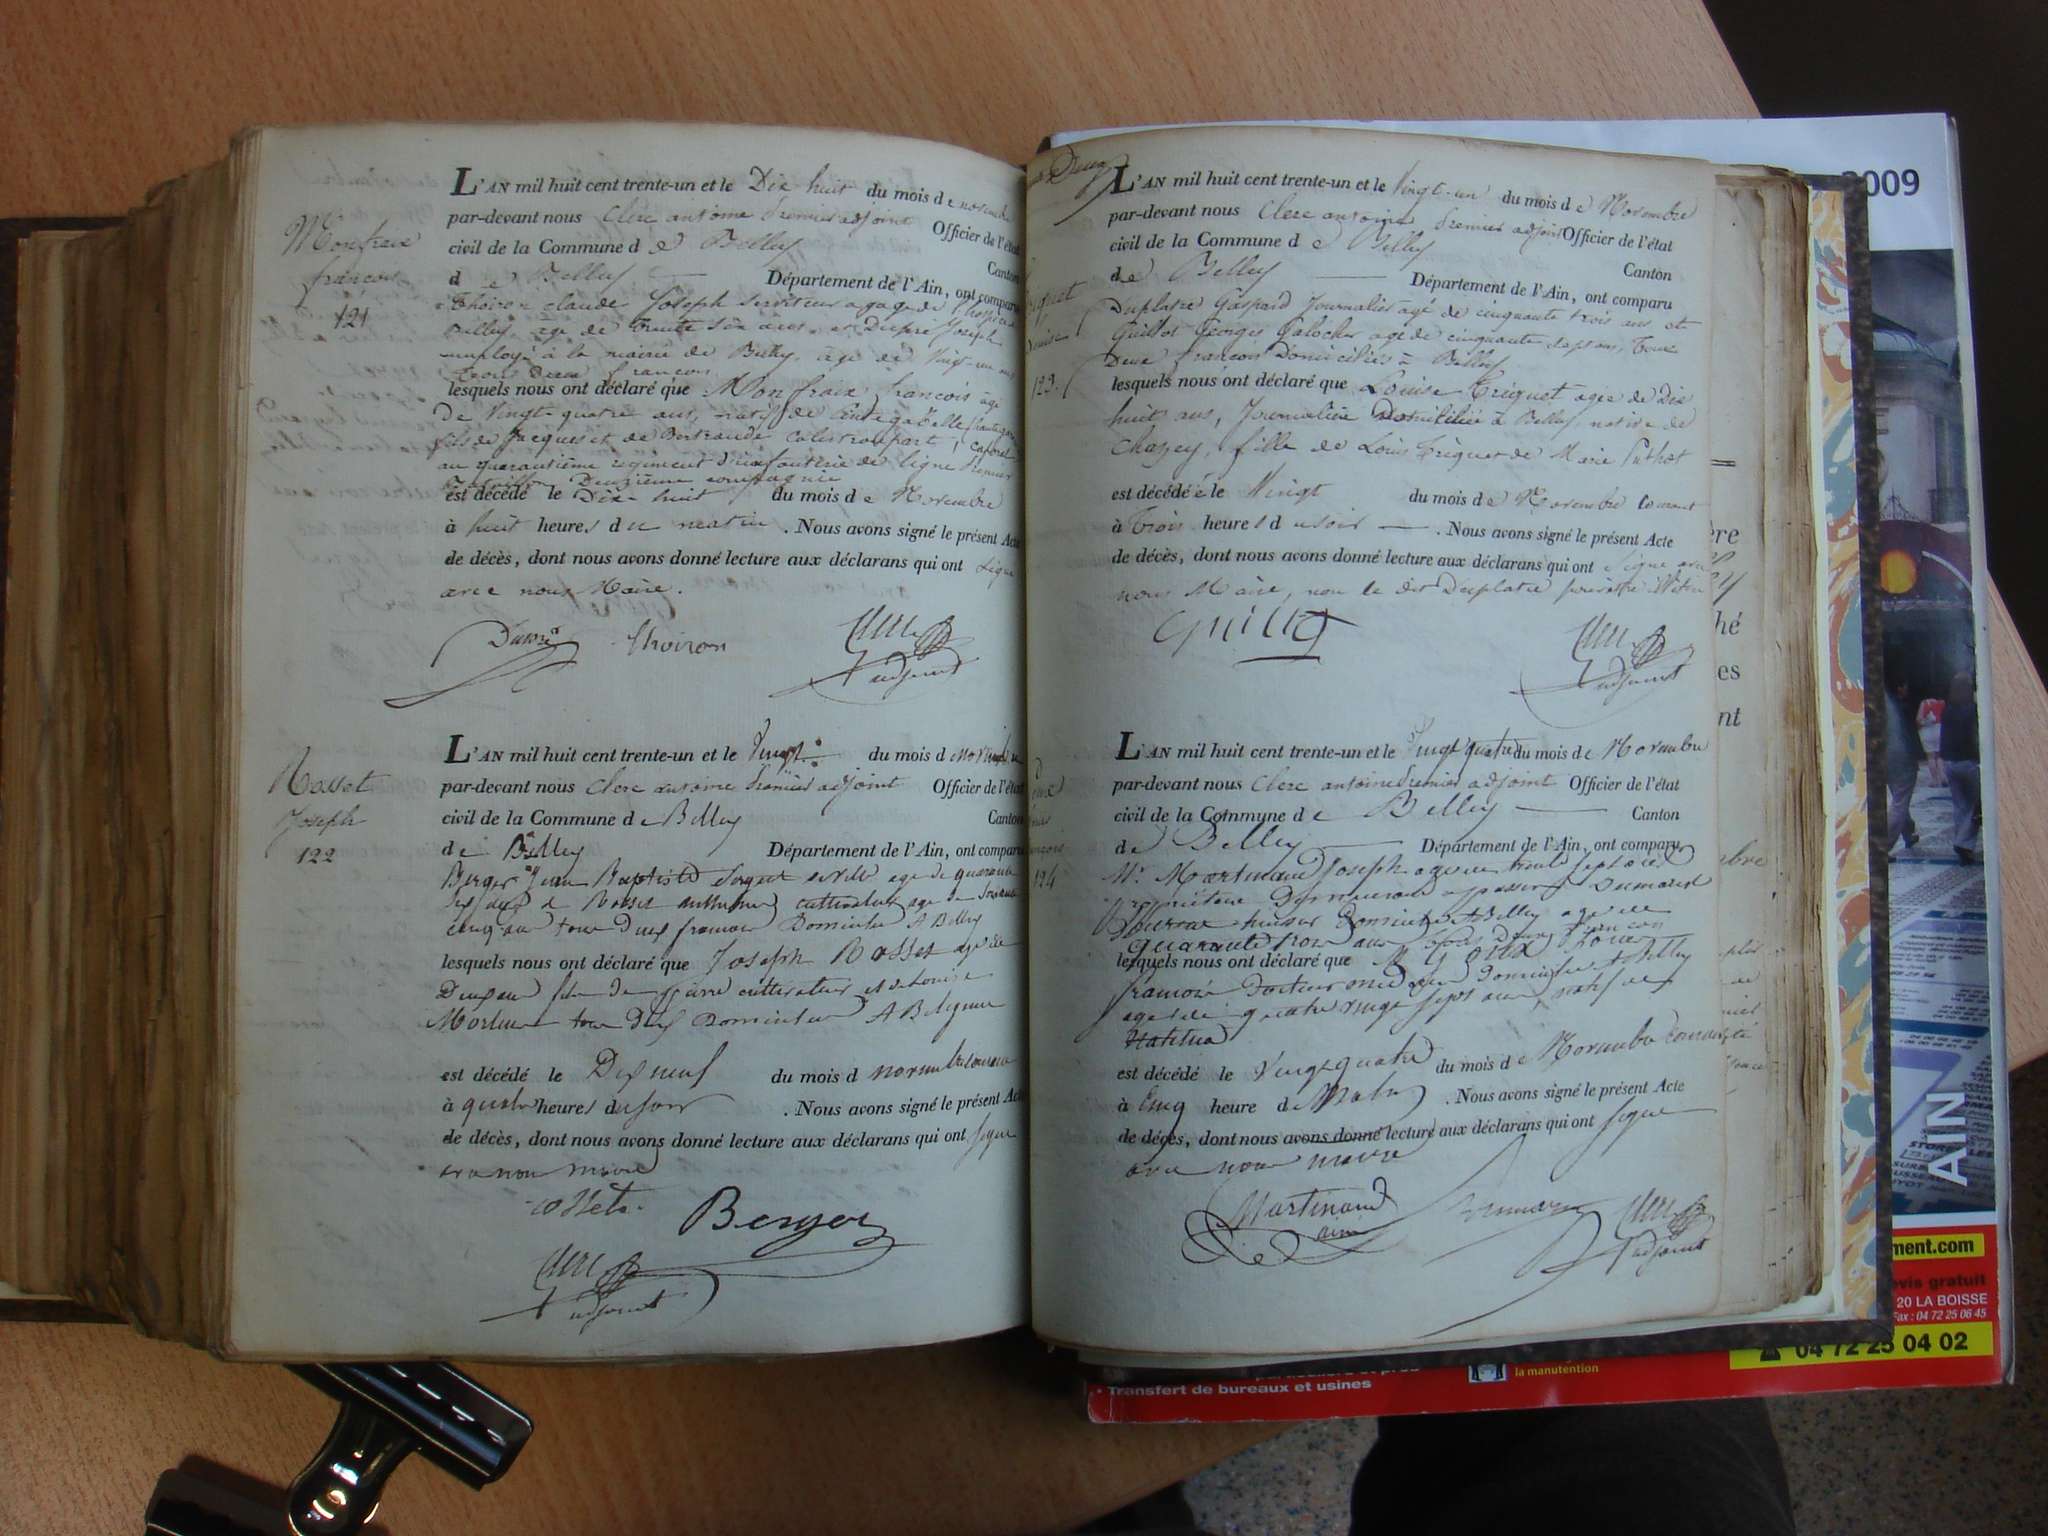 Monfraix
françois
121
L'AN mil huit cent trente-un et le Dix huit du mois de novembre
par-devant nous Clerc antoine Premier adjoint Officier de l'état
civil de la Commune de Belley Canton
de Belley Département de l'Ain, ont comparu
Thoiron claude Joseph serviteur a gage de l'hospice
Belley, age de trente six ans, et Dupré Joseph
employé à la mairie de Belley, age de Vingt-un ans
tous deux francois
lesquels nous ont déclaré que Monfraix françois agé
De Vingt-quatre ans, natif de
fils de Jacques et de Bertrande caporal
au quarantième regiment d'infanterie de ligne Premier
Bataillon Deuzième compagnie
est décédé le Dix huit du mois de Novembre
à huit heures du matin . Nous avons signé le présent Acte
de décès, dont nous avons donné lecture aux déclarans qui ont signé
avec nous Maire.
Dupré Thoiron Clerc
adjoint
Rosset
Joseph
122
L'AN mil huit cent trente-un et le Vingt du mois de novembre
par-devant nous Clerc antoine Premier adjoint Officier de l'état
civil de la Commune de Belley Canton
de Belley Département de l'Ain, ont comparu
Berger Jean Baptiste Sergent de ville age de quarante
six ans & Rosset cultivateur age de
cinq ans tous deux francois Domicilies A Belley
lesquels nous ont déclaré que Joseph Rosset age de
Deux ans fils de pierre cultivateur et de Louise
tous deux Domicilies A Belley
est décédé le Dix neuf du mois d novembre courant
à quatre heures du soir . Nous avons signé le présent Acte
de décès, dont nous avons donné lecture aux déclarans qui ont signé
avec nous maire
Berger
Clerc
adjoint
L'AN mil huit cent trente-un et le Vingt-un du mois de Novembre
par-devant nous Clerc antoine Premier adjoint Officier de l'état
civil de la Commune de Belley Canton
de Belley Département de l'Ain, ont comparu
Duplatre Gaspard Journalier agé de cinquante trois ans et
Guillot Georges Galocher age de cinquante sept ans, tous
Deux francois Domiciliés à Belley
123
lesquels nous ont déclaré que Louise Triquet agee de Dix
huit ans, Journalière Domiciliée à Belley, native de
Chazey, fille de Louis Triquet & de Marie
est décédée le Vingt du mois de Novembre Courant
à Trois heures du soir . Nous avons signé le présent Acte
de décès, dont nous avons donné lecture aux déclarans qui ont signé avec
nous Maire, non le dit Duplatre pour être
Guillot
Clerc
adjoint
L'AN mil huit cent trente-un et le Vingt quatre du mois de Novembre
par-devant nous Clerc antoine Premier adjoint Officier de l'état
civil de la Commune de Belley Canton
de Belley Département de l'Ain, ont comparu
124
Mr. Martinand Joseph age de trente sept ans
Domicilie A Belley age de
quarante trois ans tous deux francois
lesquels nous ont déclaré que
francois Docteur medecin Domicilie A Belley
age de quatre vingt sept ans, natif de
est décédé le Vingt quatre du mois de Novembre courant
à Cinq heure de Matin . Nous avons signé le présent Acte
de décès, dont nous avons donné lecture aux déclarans qui ont signé
avec nous maire
Martinand
ainé
Clerc
adjoint
2009
AIN
ment.com
evis gratuit
20 LA BOISSE
Fax : 04 72 25 06 45
04 72 25 04 02
la manutention
• Transfert de bureaux et usines